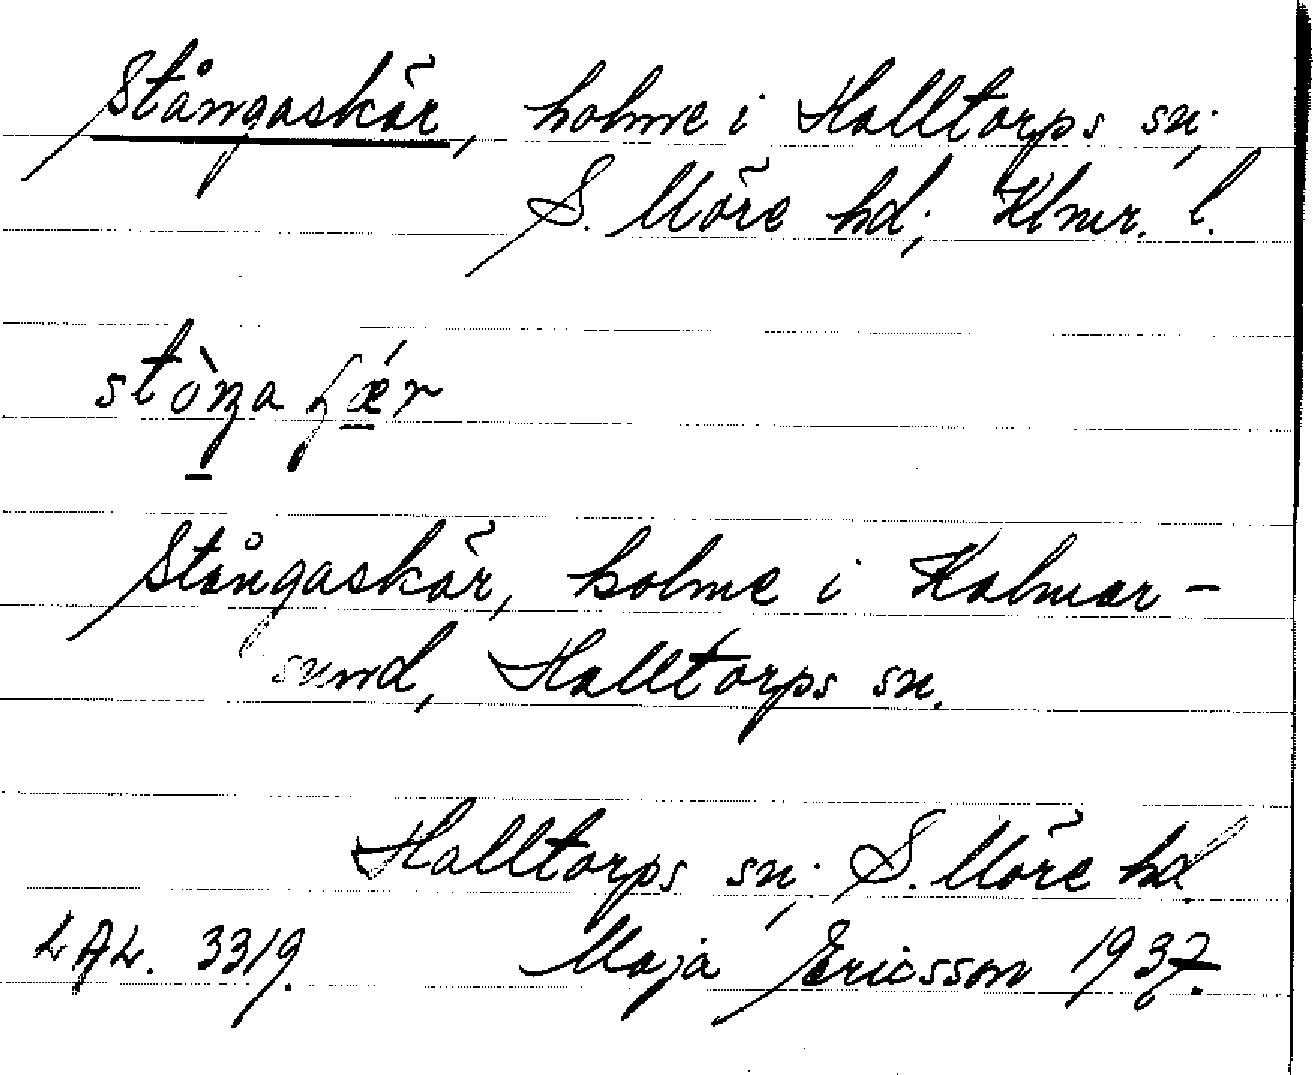 Stångaskär, holme i Halltorps sn;
S. Möre hd; Klmr. l.
Stångaskär, holme i Kalmar-
sund, Halltorps sn.
Halltorps sn; S. Möre hd.
LAL. 3319. Maja Ericsson 1937.